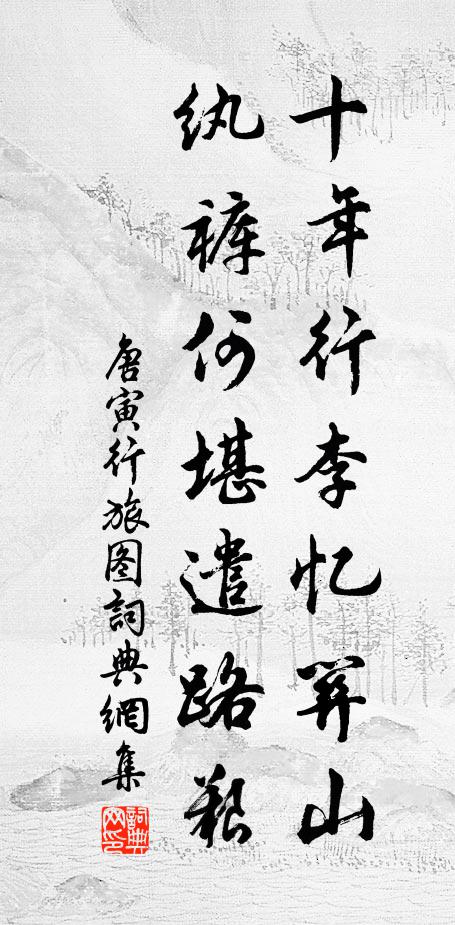 十年行李忆關山
紈褲何堪遣路艱
唐寅行旅图詞典網集
詞典网印